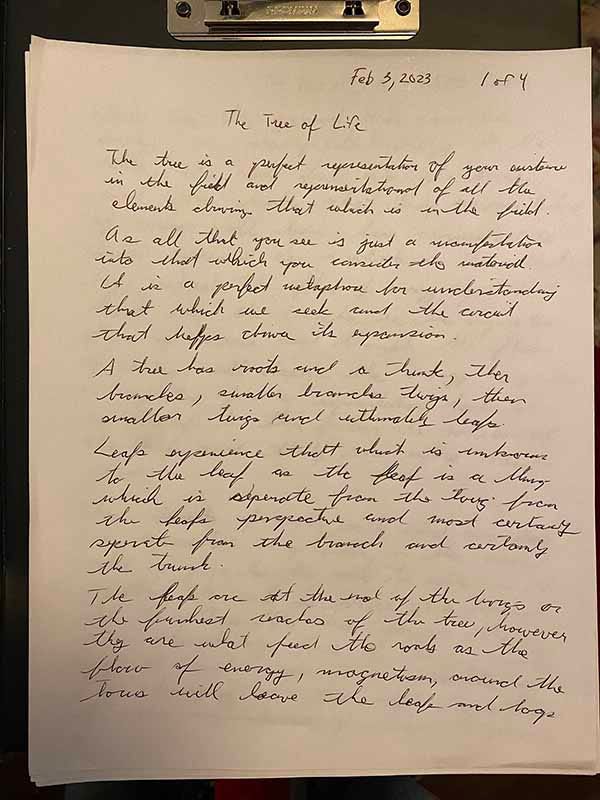 Feb 3, 2023 1 of 4
The Tree of Life
The tree is a perfect representation of your existence
in the field and representational of all the
elements driving that which is in the field.
As all that you see is just a manifestation
into that which you consider the material
It is a perfect metaphore for understanding
that which we seek and the circuit
that helps drive its expansion.
A tree has roots and a trunk, then
branches, smaller branches twigs, then
smaller twigs and ultimately leafs.
Leafs experience that which is unknown
to the leaf as the leaf is a thing
which is seperate from the twig from
the leafs perspective and most certainly
seperate from the branch and certainly
the trunk.
The leafs are at the end of the twigs or
the furthest reaches of the tree, however
they are what feed the roots as the
flow of energy, magnetism, around the
Torus will leave the leafs and